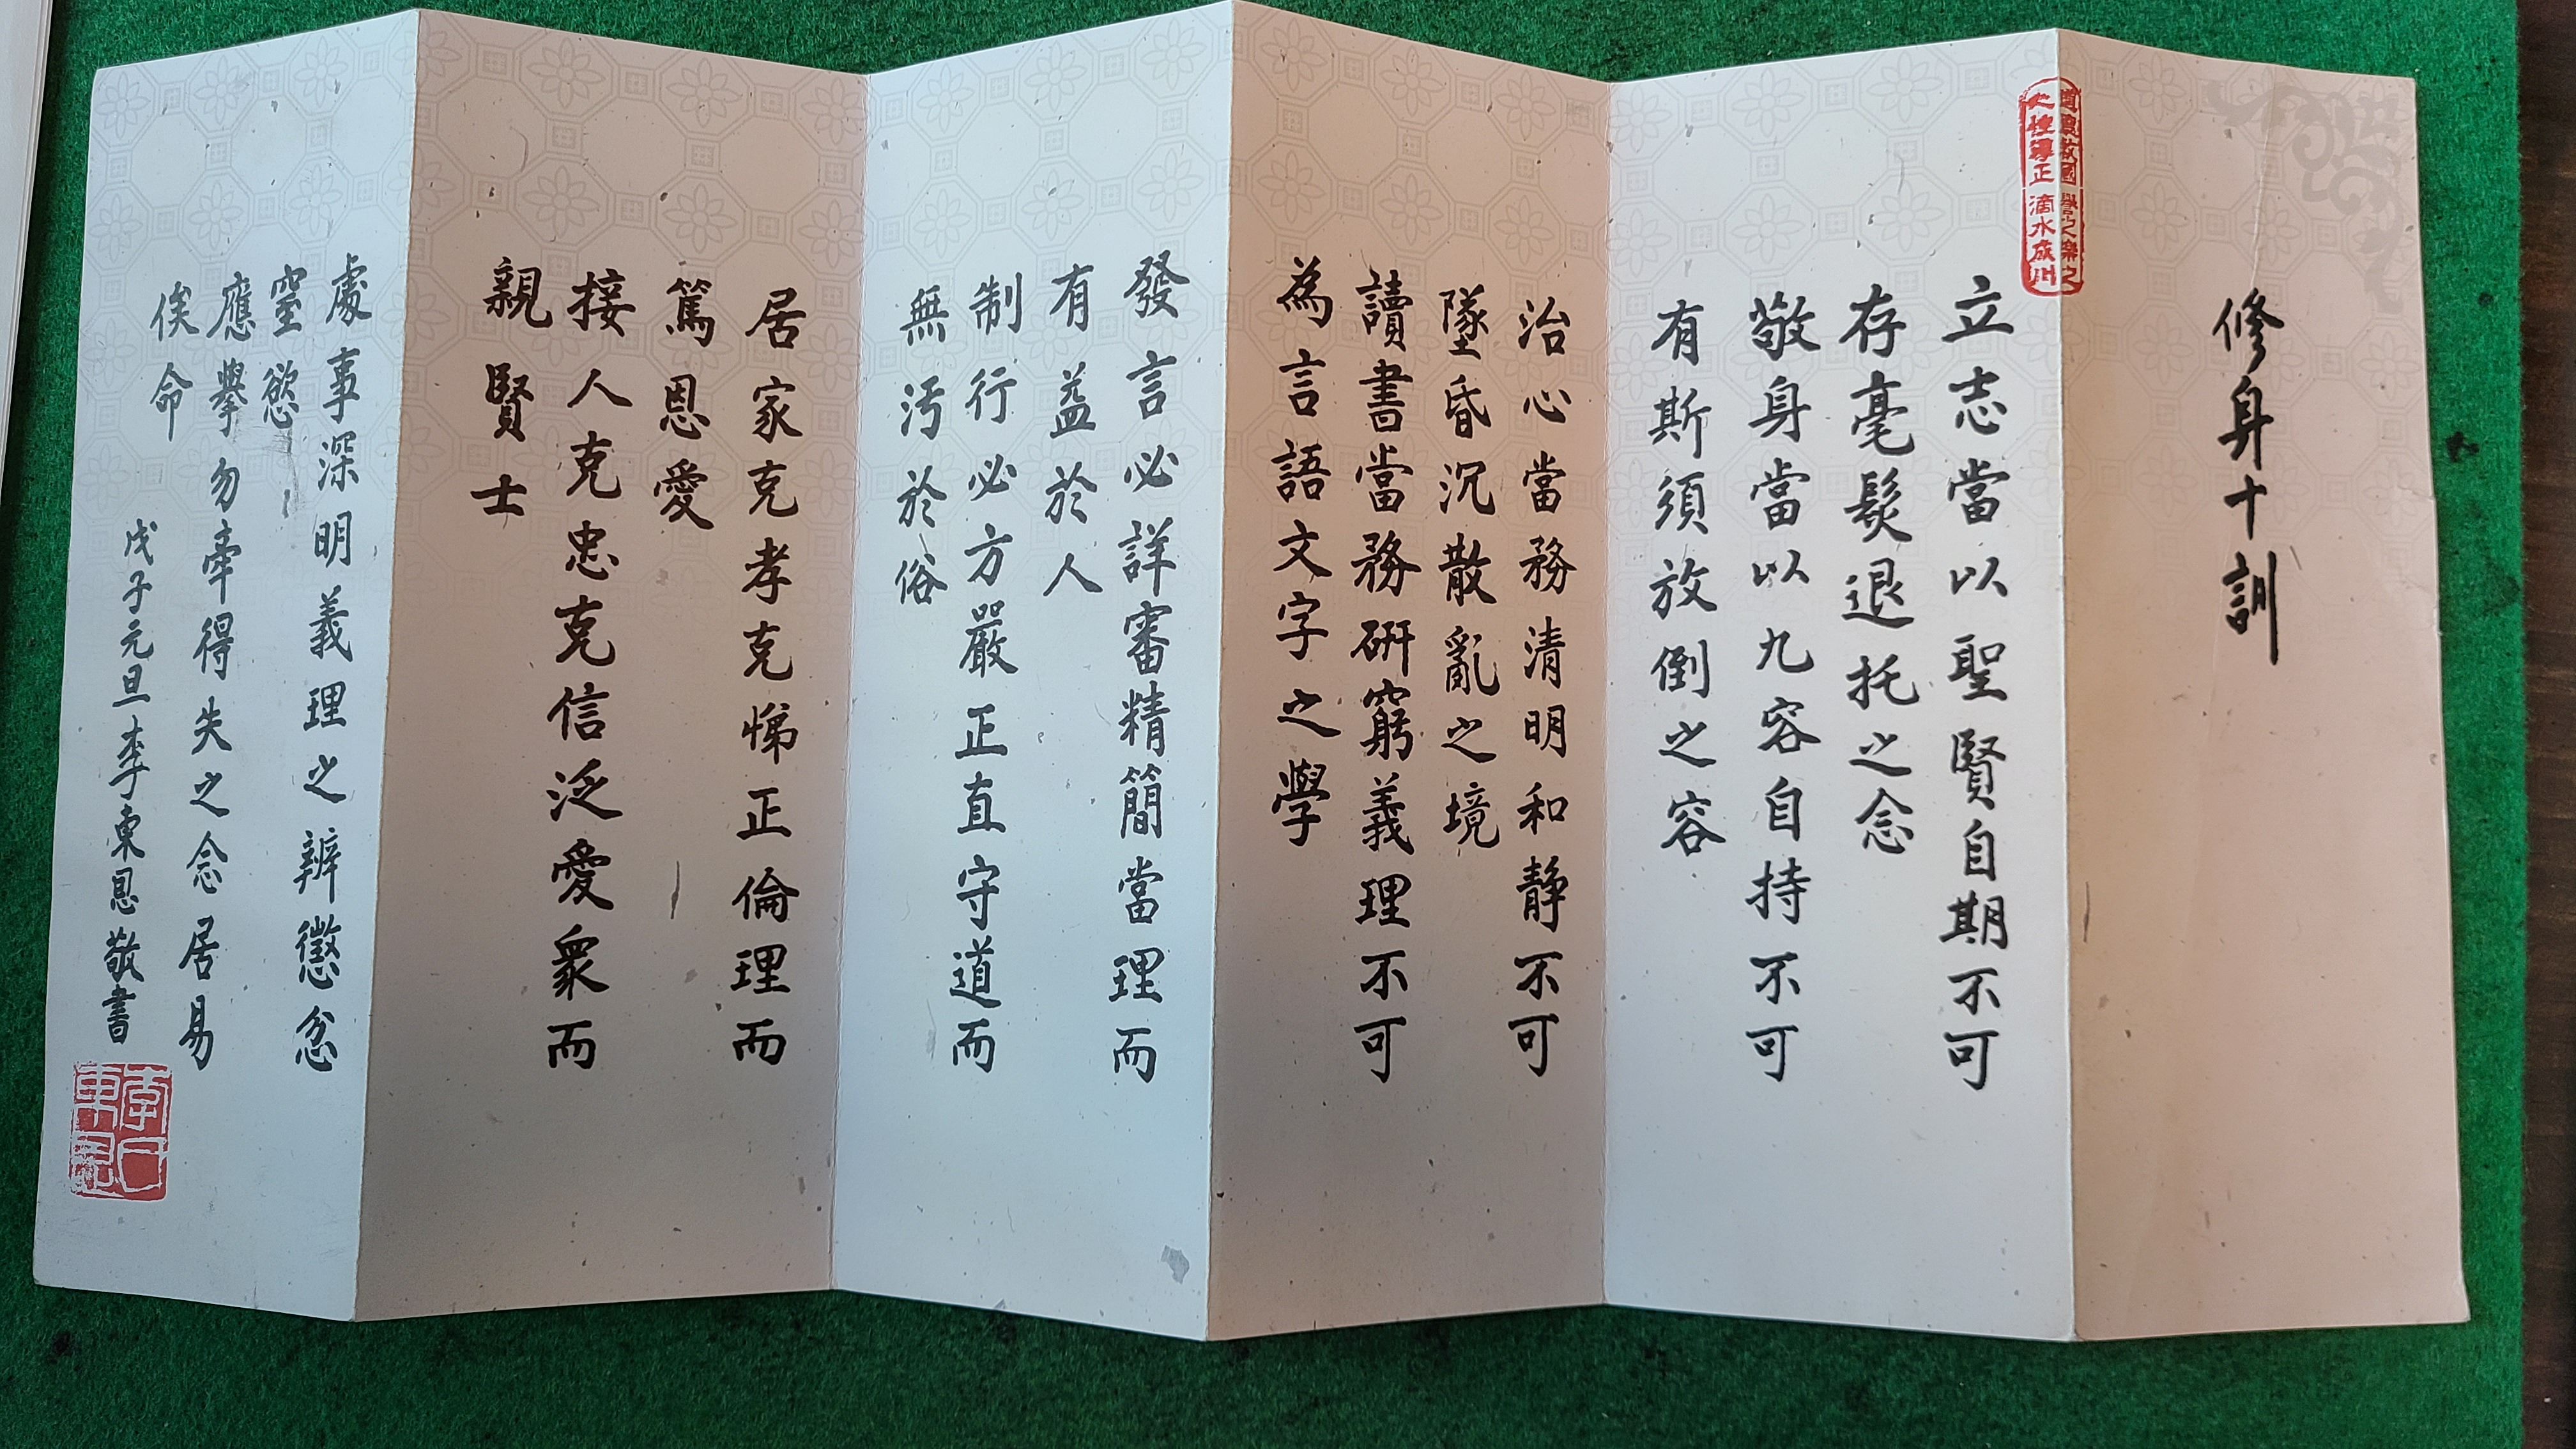 修身十訓
立志當以聖賢自期不可
存毫髮退托之念
敬身當以九容自持不可
有斯須放倒之容
治心當務清明和静不可
墜昏沉散亂之境
讀書當務研窮義理不可
為言語文字之學
發言必詳審精簡當理而
有益於人
制行必方嚴正直守道而
無汚於俗
居家克孝克悌正倫理而
篤恩愛
接人克忠克信泛愛衆而
親賢士
處事深明義理之辨懲忿
窒慾
應擧勿牽得失之念居易
俟命
戊子元旦李東恩敬書